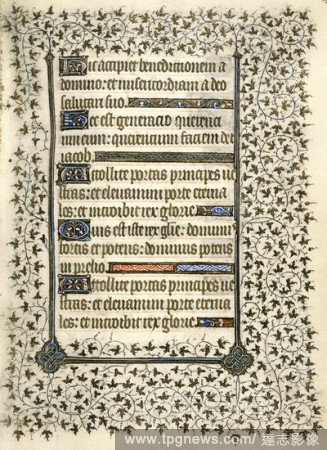 Hic accipiet benedictionem a
domino: et misericordiam a deo
salutari suo.
Hec est generacio querenciū
um eum: querencium faciem dei
iacob.
Attollite portas principes ue
stras: et eleuamini porte eterna
les: et introibit rex glorie.
Quis est iste rex glie: dominus
fortis et potens: dominus potens
in prelio.
Attollite portas principes ue
stras: et eleuamini porte eterna
les: et introibit rex glorie.
www.tpgnews.com/達志影像